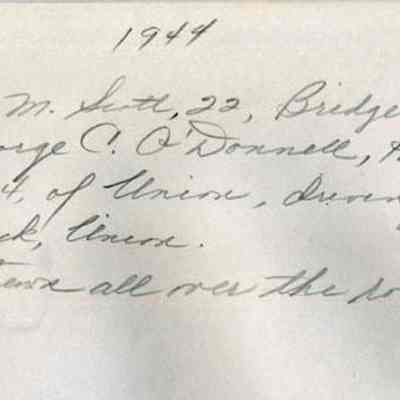 1944
M. Scott, 22, Bridge
orge C. O'Donnell,
4, of Union, drivin
ck, Union.
ewn all over the ro